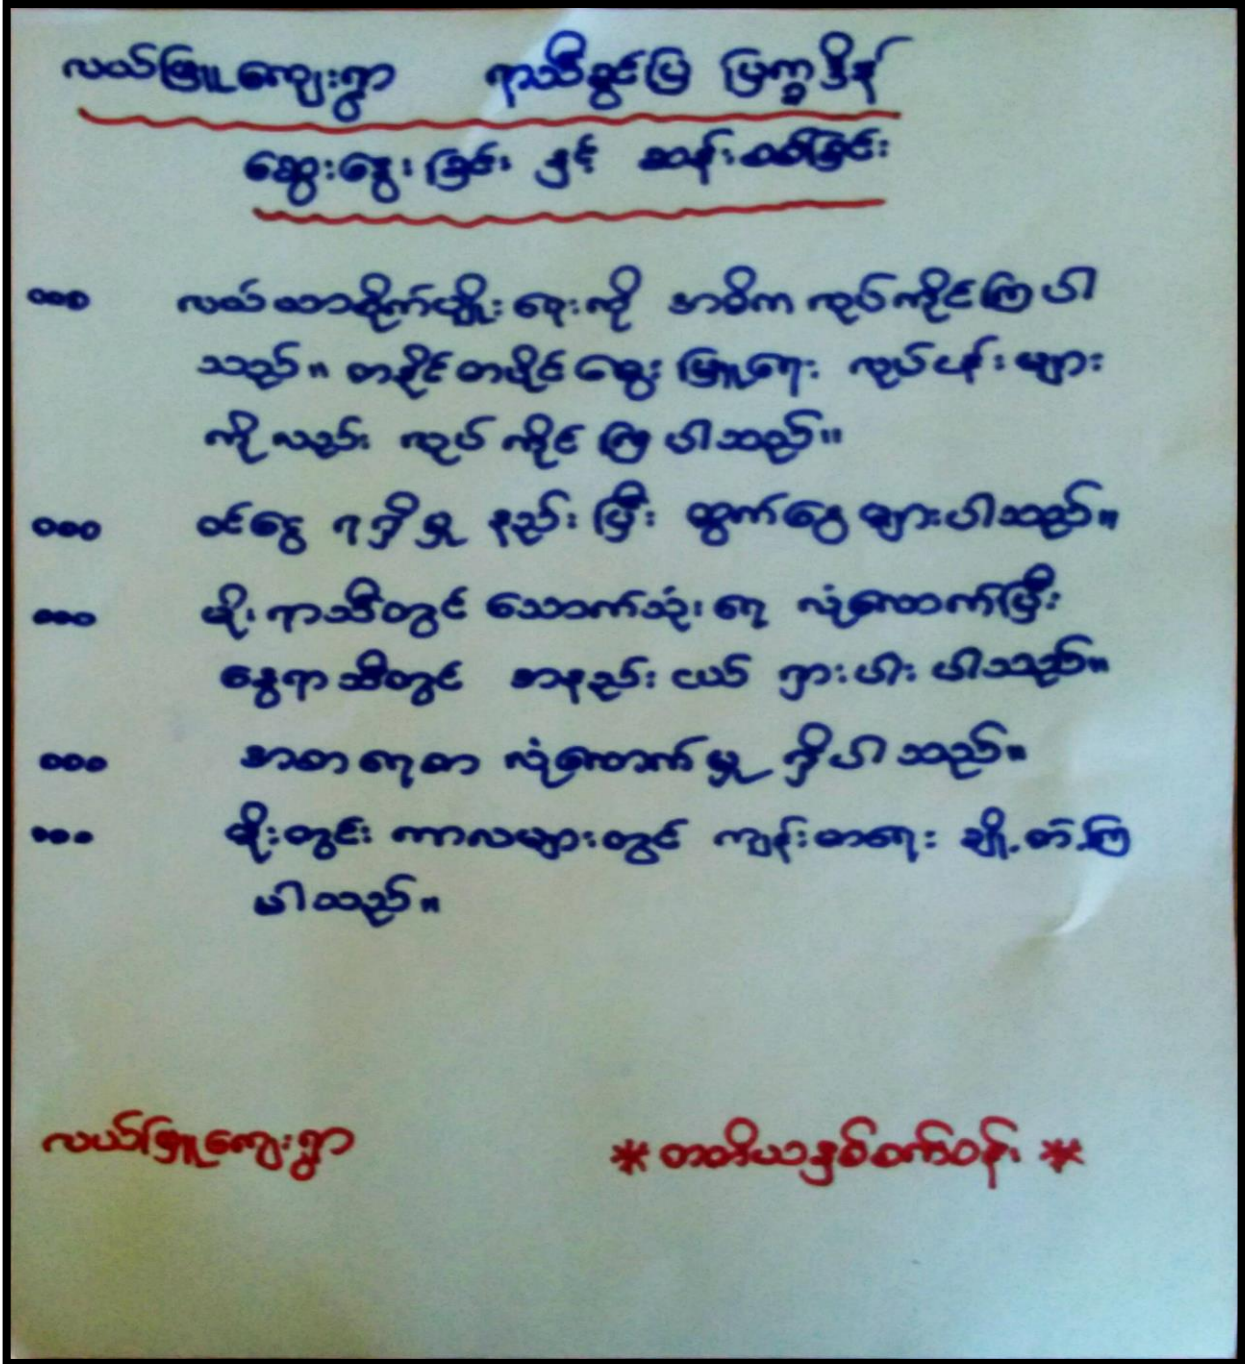 လယ်ဖြူကျေးရွာ ရာသီခွင်ပြ ပြက္ခဒိန်
ဆွေးနွေးခြင်း နှင့် ဆန်းစစ်ခြင်း
၀၀၀ လယ်ယာစိုက်ပျိုးရေးကို အဓိက လုပ်ကိုင်ကြပါ
သည်။ တနိုင်တပိုင်မွေးမြူရေး လုပ်ငန်းများ
ကိုလည်း လုပ်ကိုင်ကြပါသည်။
၀၀၀ ဝင်ငွေ ရရှိမှု နည်းပြီး ထွက်ငွေ များပါသည်။
၀၀၀ မိုးရာသီတွင် သောက်သုံးရေ လုံလောက်ပြီး
နွေရာသီတွင် အနည်းငယ် ရှားပါးပါသည်။
၀၀၀ အစာရေစာ လုံလောက်မှု ရှိပါသည်။
၀၀၀ မိုးတွင်းကာလများတွင် ကျန်းမာရေး ချို့တဲ့ကြ
ပါသည်။
လယ်ဖြူကျေးရွာ * တတိယနှစ်စက်ဝန်း *